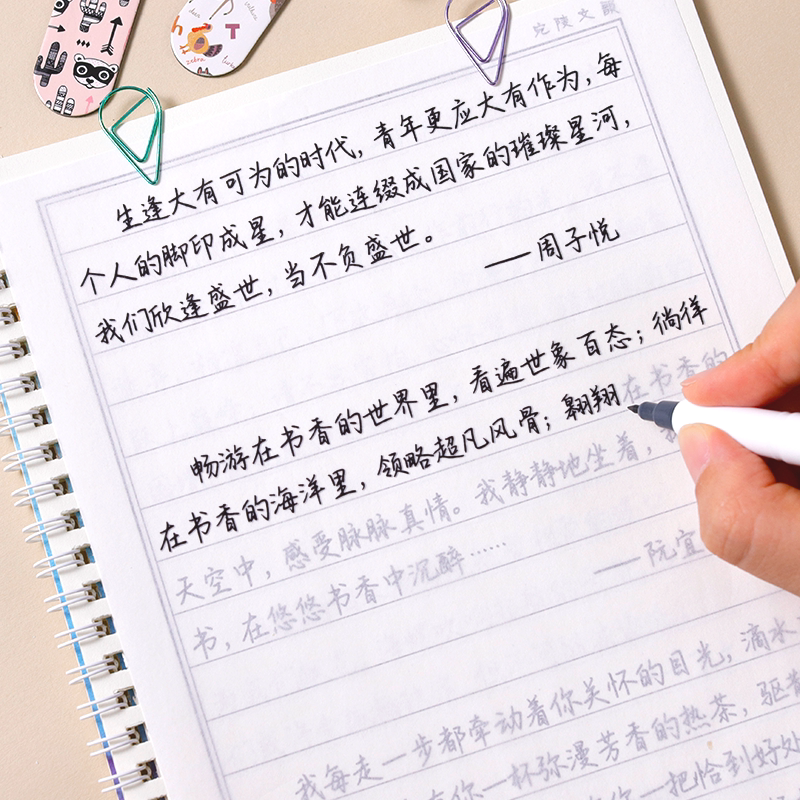 生逢大有可为的时代，青年更应大有作为，每
个人的脚印成星，才能连缀成国家的璀璨星河，
我们欣逢盛世，当不负盛世。
——周子悦
畅游在书香的世界里，看遍世象百态；徜徉
在书香的海洋里，领略超凡风骨；翱翔在书香的
天空中，感受脉脉真情。我静静地坐着，
书，在悠悠书香中沉醉……
——阮宜
我每走一步都牵动着你关怀的目光，滴水
一杯弥漫芳香的热茶，驱
一把恰到好处